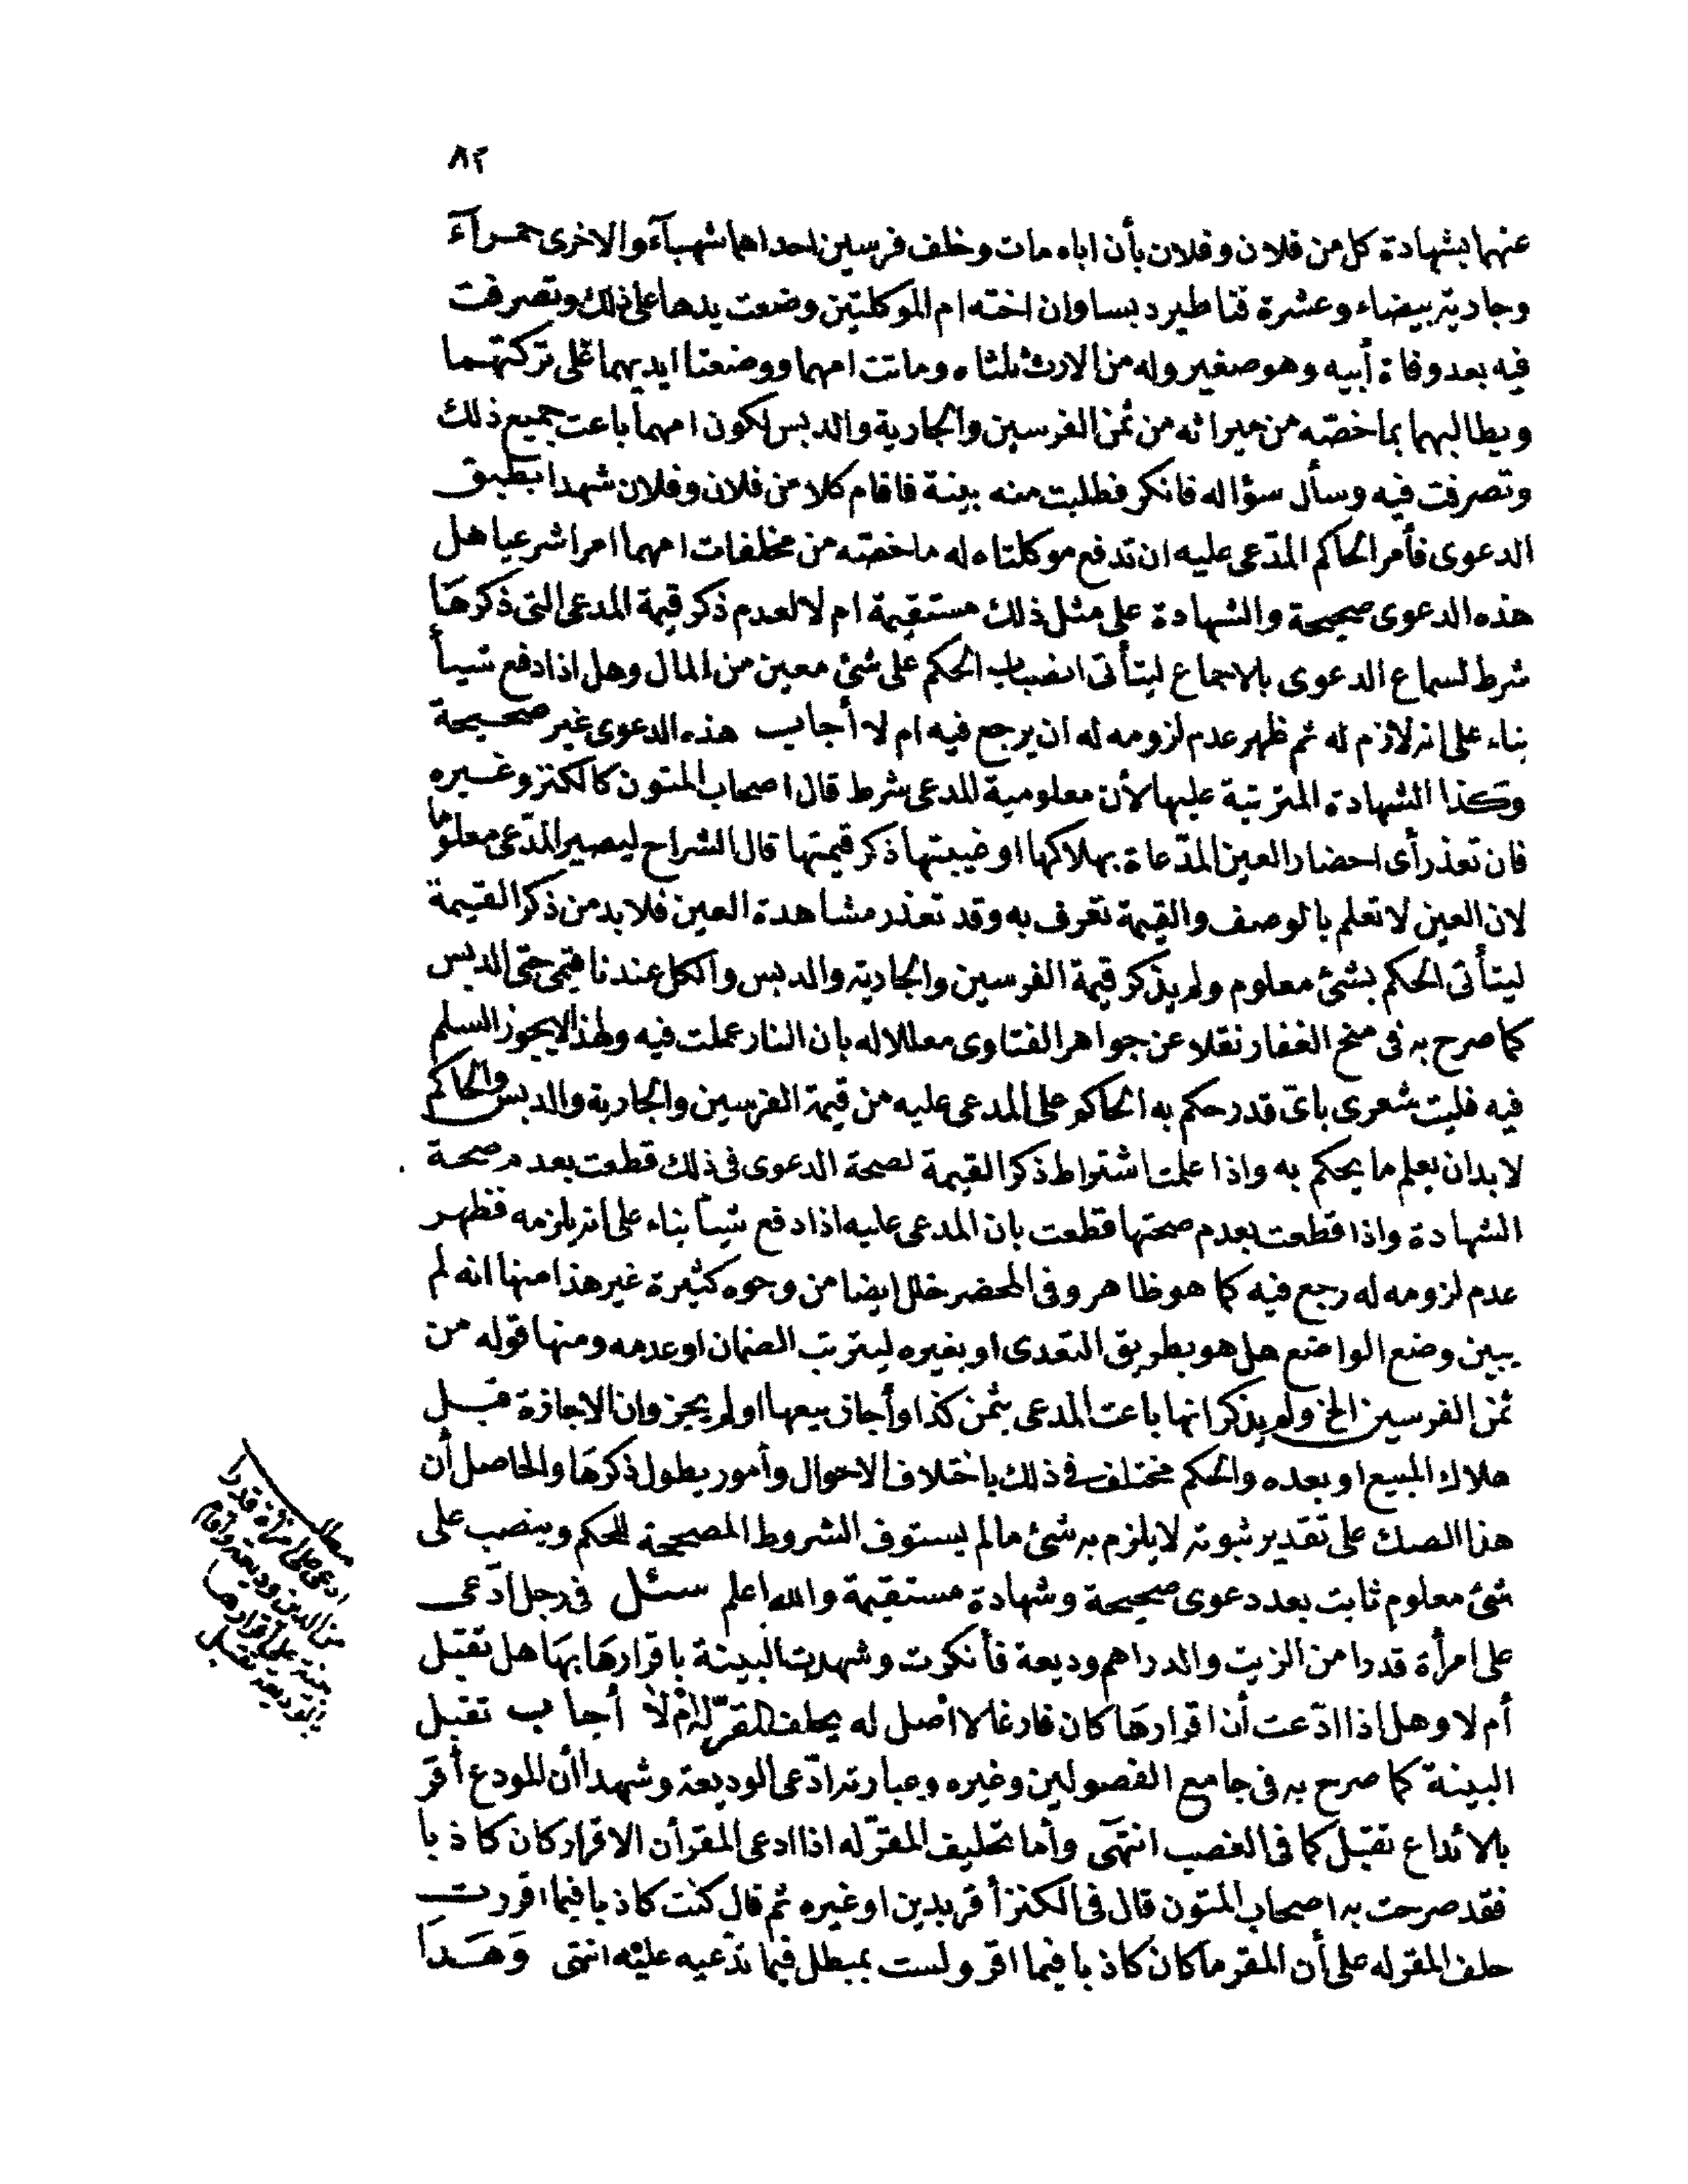 ٨٢
عنهما بشهادة كل من فلان وفلان بأن اباه مات وخلف فرسين احداهما شهبآء والاخرى حمرآء
وجارية بيضاء وعشرة قناطير دبسا وان اخته ام الموكلتين وضعت يدها على ذلك وتصرفت
فيه بعد وفاة أبيه وهو صغير وله من الارث ثلثاه وماتت امهما ووضعتا ايديهما على تركتهما
ويطالبهما بما خصه من ميراثه من ثمن الفرسين والجارية والدبس لكون امهما باعت جميع ذلك
وتصرفت فيه وسأل سؤاله فانكر فطلبت منه بينة فاقام كلا من فلان وفلان شهدا بطبق
الدعوى فأمر الحاكم المدّعى عليه ان تدفع موكلتاه له ما خصه من مخلفات امهما امرا شرعيا هل
هذه الدعوى صحيحة والشهادة على مثل ذلك مستقيمة ام لا لعدم ذكر قيمة المدعى التى ذكرها
شرط لسماع الدعوى بالاجماع ليتأتى انضباط الحكم على شئ معين من المال وهل اذا دفع شيأ
بناء على انه لازم له ثم ظهر عدم لزومه له ان يرجع فيه ام لا أجاب هذه الدعوى غير صحيحة
وكذا الشهادة المترتبة عليها لأن معلومية المدعى شرط قال اصحاب المتون كالكنز وغيره
فان تعذر أى احضار العين المدّعاة بهلاكها او غيبتها ذكر قيمتها قال الشراح ليصير المدّعى معلوما
لان العين لا تعلم بالوصف والقيمة تعرف به وقد تعذر مشاهدة العين فلا بد من ذكر القيمة
ليتأتى الحكم بشئ معلوم ولم يذكر قيمة الفرسين والجارية والدبس والكل عندنا قيمى حتى الدبس
كما صرح به فى منح الغفار نقلا عن جواهر الفتاوى معللا له بان النار عملت فيه ولهذا لا يجوز السلم
فيه فليت شعرى باىّ قدر حكم به الحاكم على المدعى عليه من قيمة الفرسين والجارية والدبس والحاكم
لا بد ان يعلم ما يحكم به واذا علمت اشتراط ذكر القيمة لصحة الدعوى فى ذلك قطعت بعدم صحة
الشهادة واذا قطعت بعدم صحتها قطعت بان المدعى عليه اذا دفع شيأ بناء على انه يلزمه فظهر
عدم لزومه له رجع فيه كما هو ظاهر وفى المحضر خلل ايضا من وجوه كثيرة غير هذا منها انه لم
يبين وضع الواضع هل هو بطريق التعدى او بغيره ليترتب الضمان او عدمه ومنها قوله من
ثمن الفرسين الخ ولم يذكر انها باعت المدعى بثمن كذا وأجاز بيعها او لم يجز وان الاجازة قبل
هلاك المبيع او بعده والحكم مختلف فى ذلك باختلاف الاحوال وأمور يطول ذكرها والحاصل أن
هذا الصك على تقدير ثبوته لا يلزم به شئ ما لم يستوف الشروط المصححة للحكم وينصب على
شئ معلوم ثابت بعد دعوى صحيحة وشهادة مستقيمة والله اعلم سئل فى رجل ادّعى
على امرأة قدرا من الزيت والدراهم وديعة فأنكرت وشهدت البينة باقرارها بها هل تقبل
أم لا وهل اذا ادّعت أن اقرارها كان فارغا لا أصل له يحلف المقرّ له أم لا أجاب تقبل
البينة كما صرح به فى جامع الفصولين وغيره وعبارته ادّعى الوديعة وشهدا أن المودع أقر
بالأيداع تقبل كما فى الغصب انتهى وأما تحليف المقرّ له اذا ادعى المقر أن الاقرار كان كاذبا
فقد صرحت به اصحاب المتون قال فى الكنز أقر بدين او غيره ثم قال كنت كاذبا فيما اقررت
حلف المقر له على أن المقر ما كان كاذبا فيما اقر ولست بمبطل فيما تدّعيه عليه انتهى وهذا
مطلب
ادعى على امرأة قدرا
من الدين وديعة واقام
بينة على اقرارها
بالوديعة تقبل